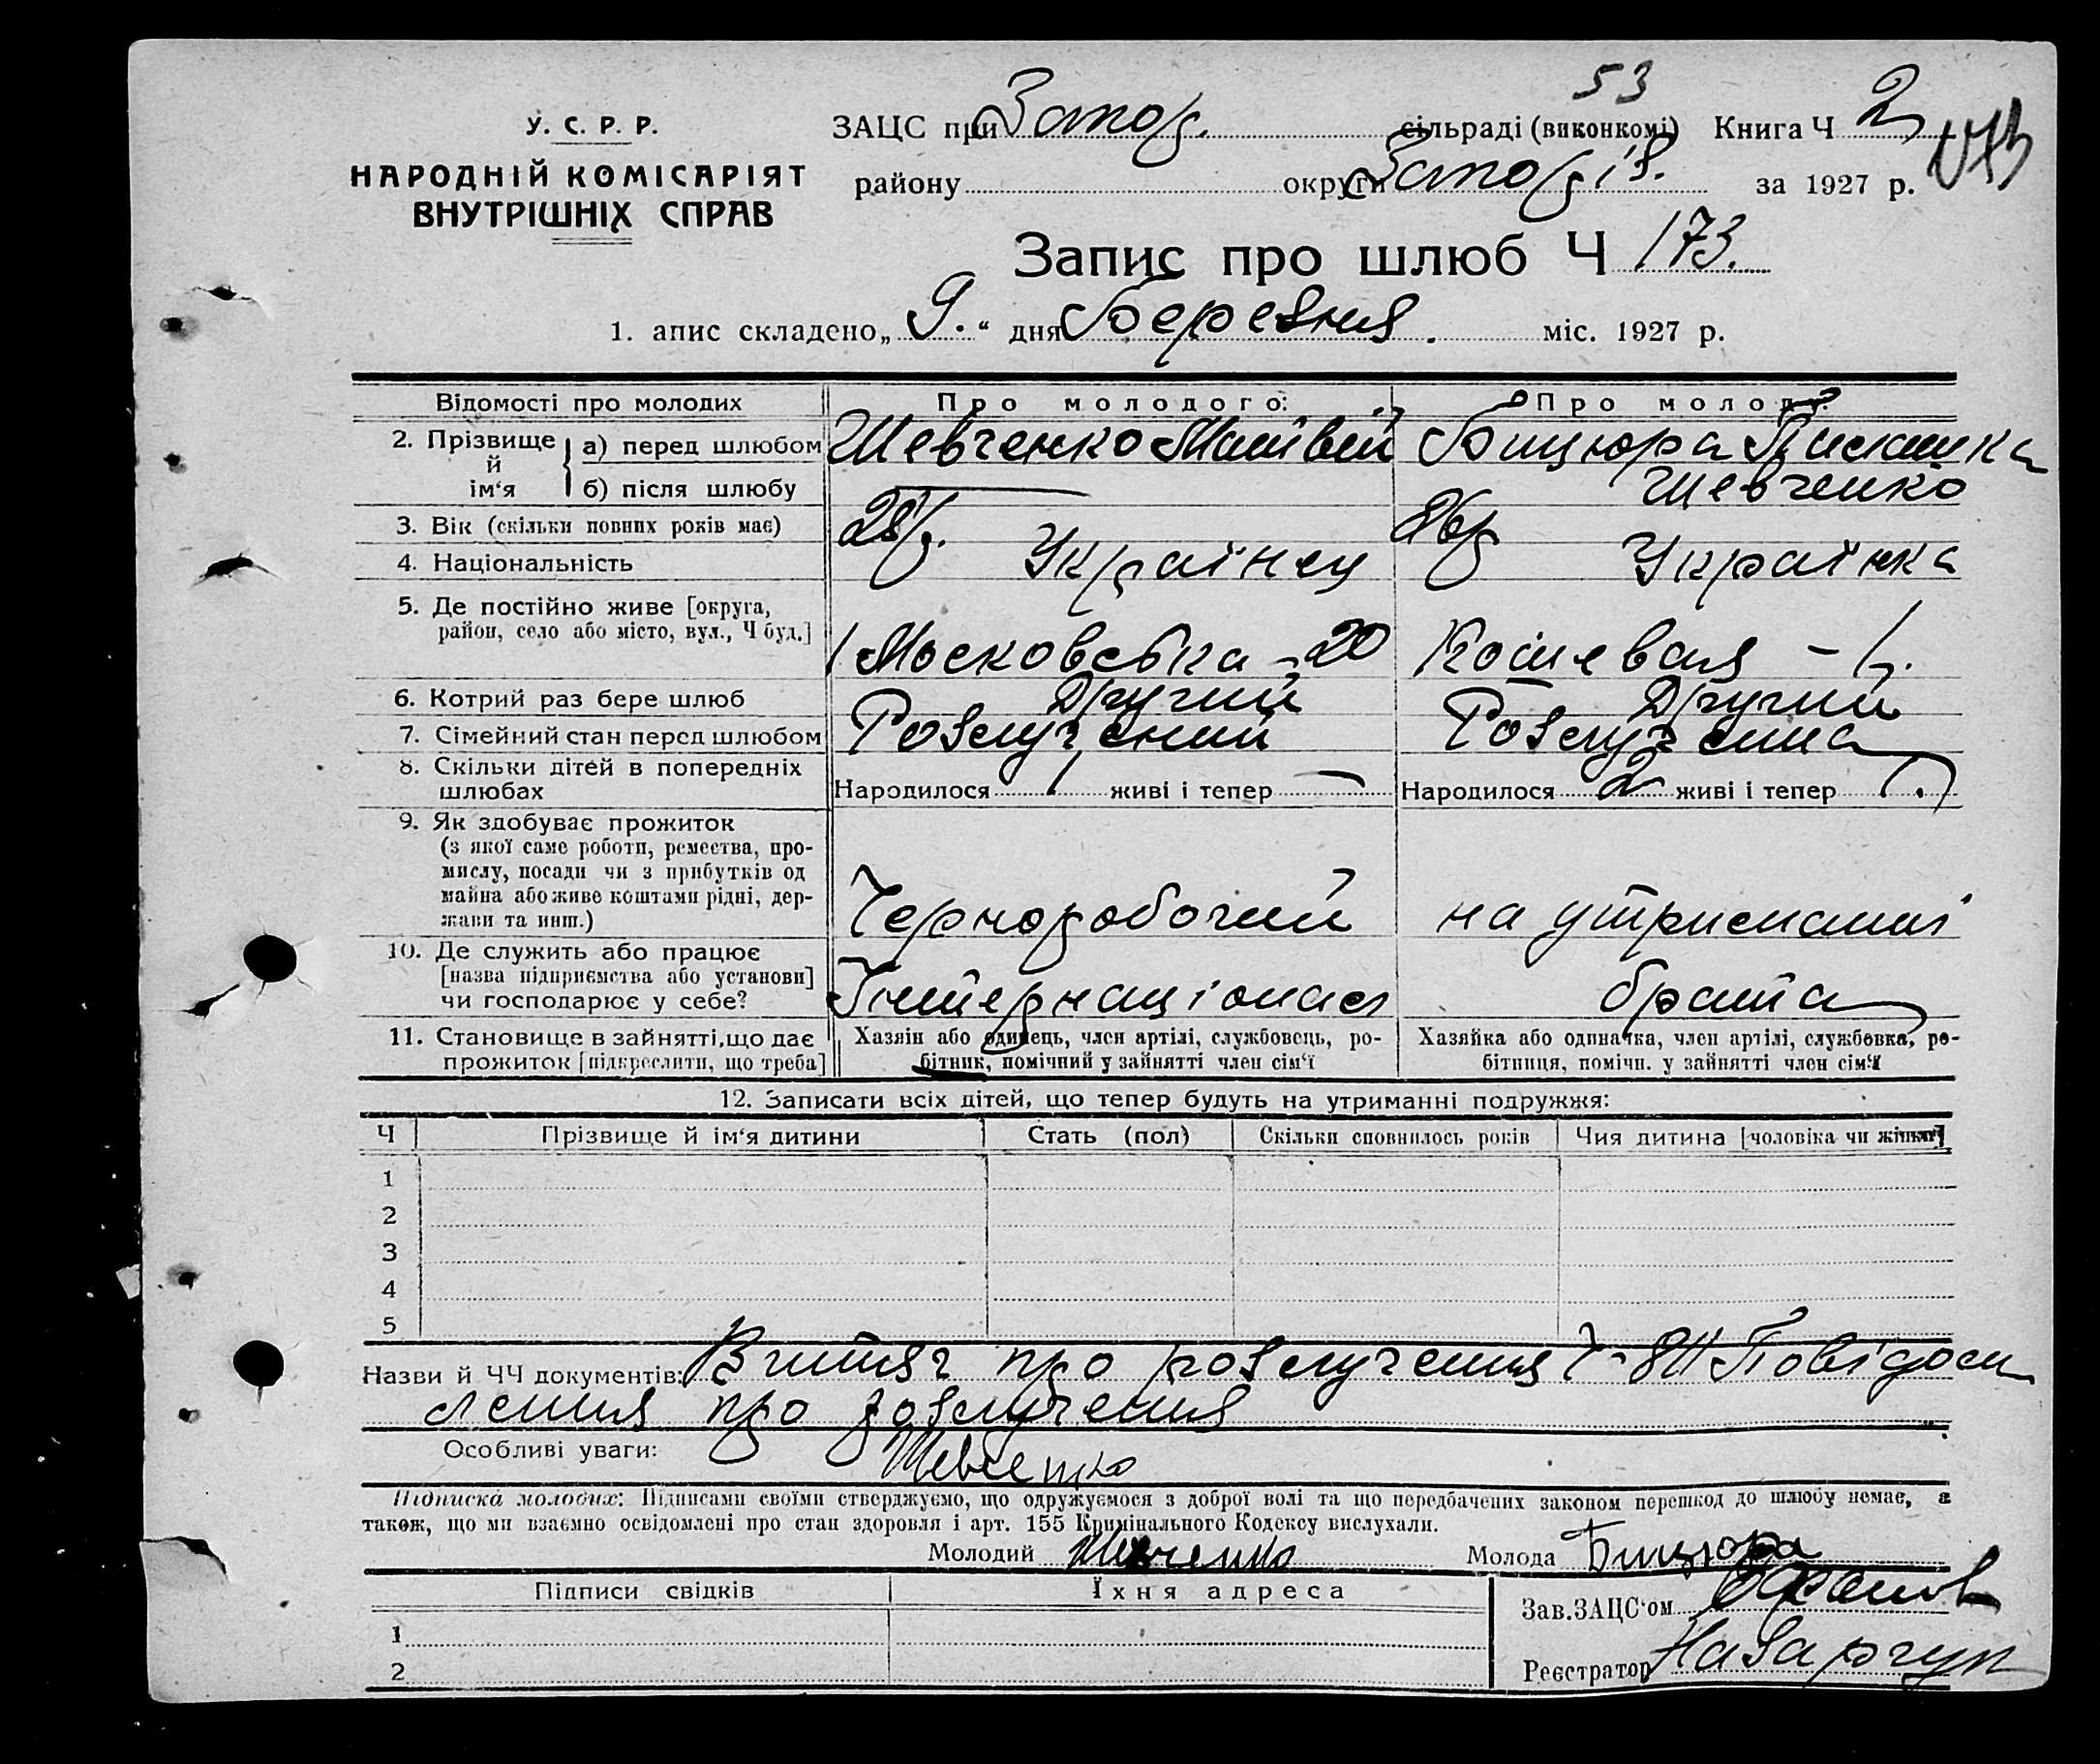 53
У. С. Р. Р.
НАРОДНІЙ КОМІСАРІЯТ
ВНУТРІШНІХ СПРАВ
ЗАЦС при Запор. сільраді (виконкомі) Книга Ч 2
району округи Запоріз. за 1927 р.
Запис про шлюб Ч 173.
1. апис складено „ 9. “ дня Березня . міс. 1927 р.
Відомості про молодих Про молодого: Про молоду:
2. Прізвище й ім‘я
а) перед шлюбом Шевченко Матвій Бицюра
б) після шлюбу — Шевченко
3. Вік (скільки повних років має) 28 р. 26 р
4. Національність Українец Українка
5. Де постійно живе [округа,
район, село або місто, вул., Ч буд.] Московська - 20 Кошевая -
6. Котрий раз бере шлюб Другий Другий
7. Сімейний стан перед шлюбом Розлучений Розлучена
8. Скільки дітей в попередніх
шлюбах Народилося 1 живі і тепер — Народилося 2 живі і тепер
9. Як здобуває прожиток
(з якої саме роботи, ремества, про-
мислу, посади чи з прибутків од
майна або живе коштами рідні, дер-
жави та инш.) Черноробочий на утриманні
10. Де служить або працює
[назва підприємства або установи]
чи господарює у себе? Інтернаціонал брата
11. Становище в зайнятті, що дає
прожиток [підкреслити, що треба]
Хазяїн або одинець, член артілі, службовець, ро-
бітник, помічний у зайнятті член сім‘ї
Хазяйка або одиначка, член артілі, службовка, ро-
бітниця, помічн. у зайнятті член сім‘ї
12. Записати всіх дітей, що тепер будуть на утриманні подружжя:
Ч Прізвище й ім‘я дитини Стать (пол) Скільки сповнилось років Чия дитина [чоловіка чи жінки]
1
2
3
4
5
Назви й ЧЧ документів: Витяг про розлучення Ч-84 Повідом
лення про розлучення
Особливі уваги: Шевченко
Підписка молодих: Підписами своїми стверджуємо, що одружуємося з доброї волі та що передбачених законом перешкод до шлюбу немає, а
також, що ми взаємно освідомлені про стан здоровля і арт. 155 Кримінального Кодексу вислухали.
Молодий Шевченко Молода Бицюра
Підписи свідків Їхня адреса
Зав. ЗАЦС‘ом
1
Реєстратор Назарчук
2